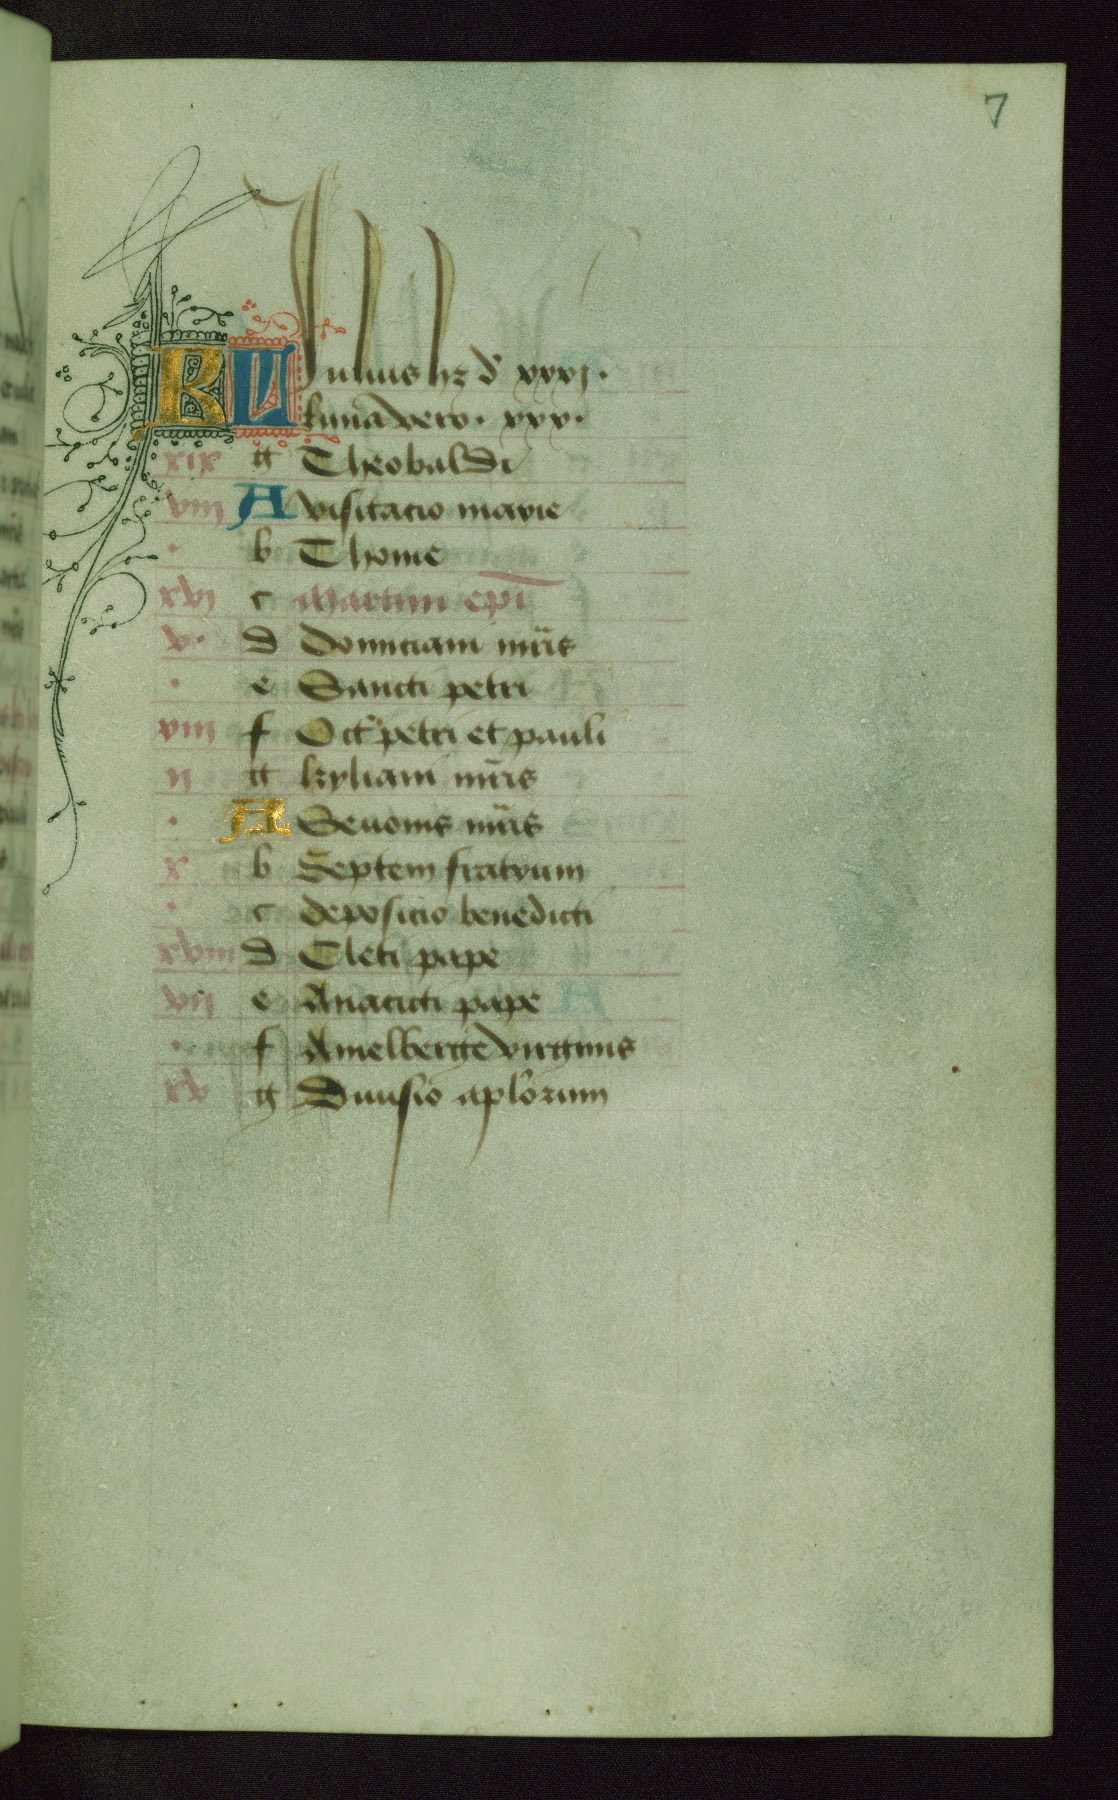 7
KL Julius hꝫ d̕ xxxj.
Luna vero. xxx.
xix g Theobaldi
viii A visitacio marie
. b Thome
xvj c Martini ep̄i
v. d Domiciani mr̄is
. e Sancti petri
xiii f Oct̕ petri et pauli
ij g kyliani mr̄is
. A Zenonis mr̄is
x b Septem fratrum
. c deposicio benedicti
xviii d Cleti pape
vij e Anacleti pape
. f Amelberge virginis
xv g Diuisio aplorum